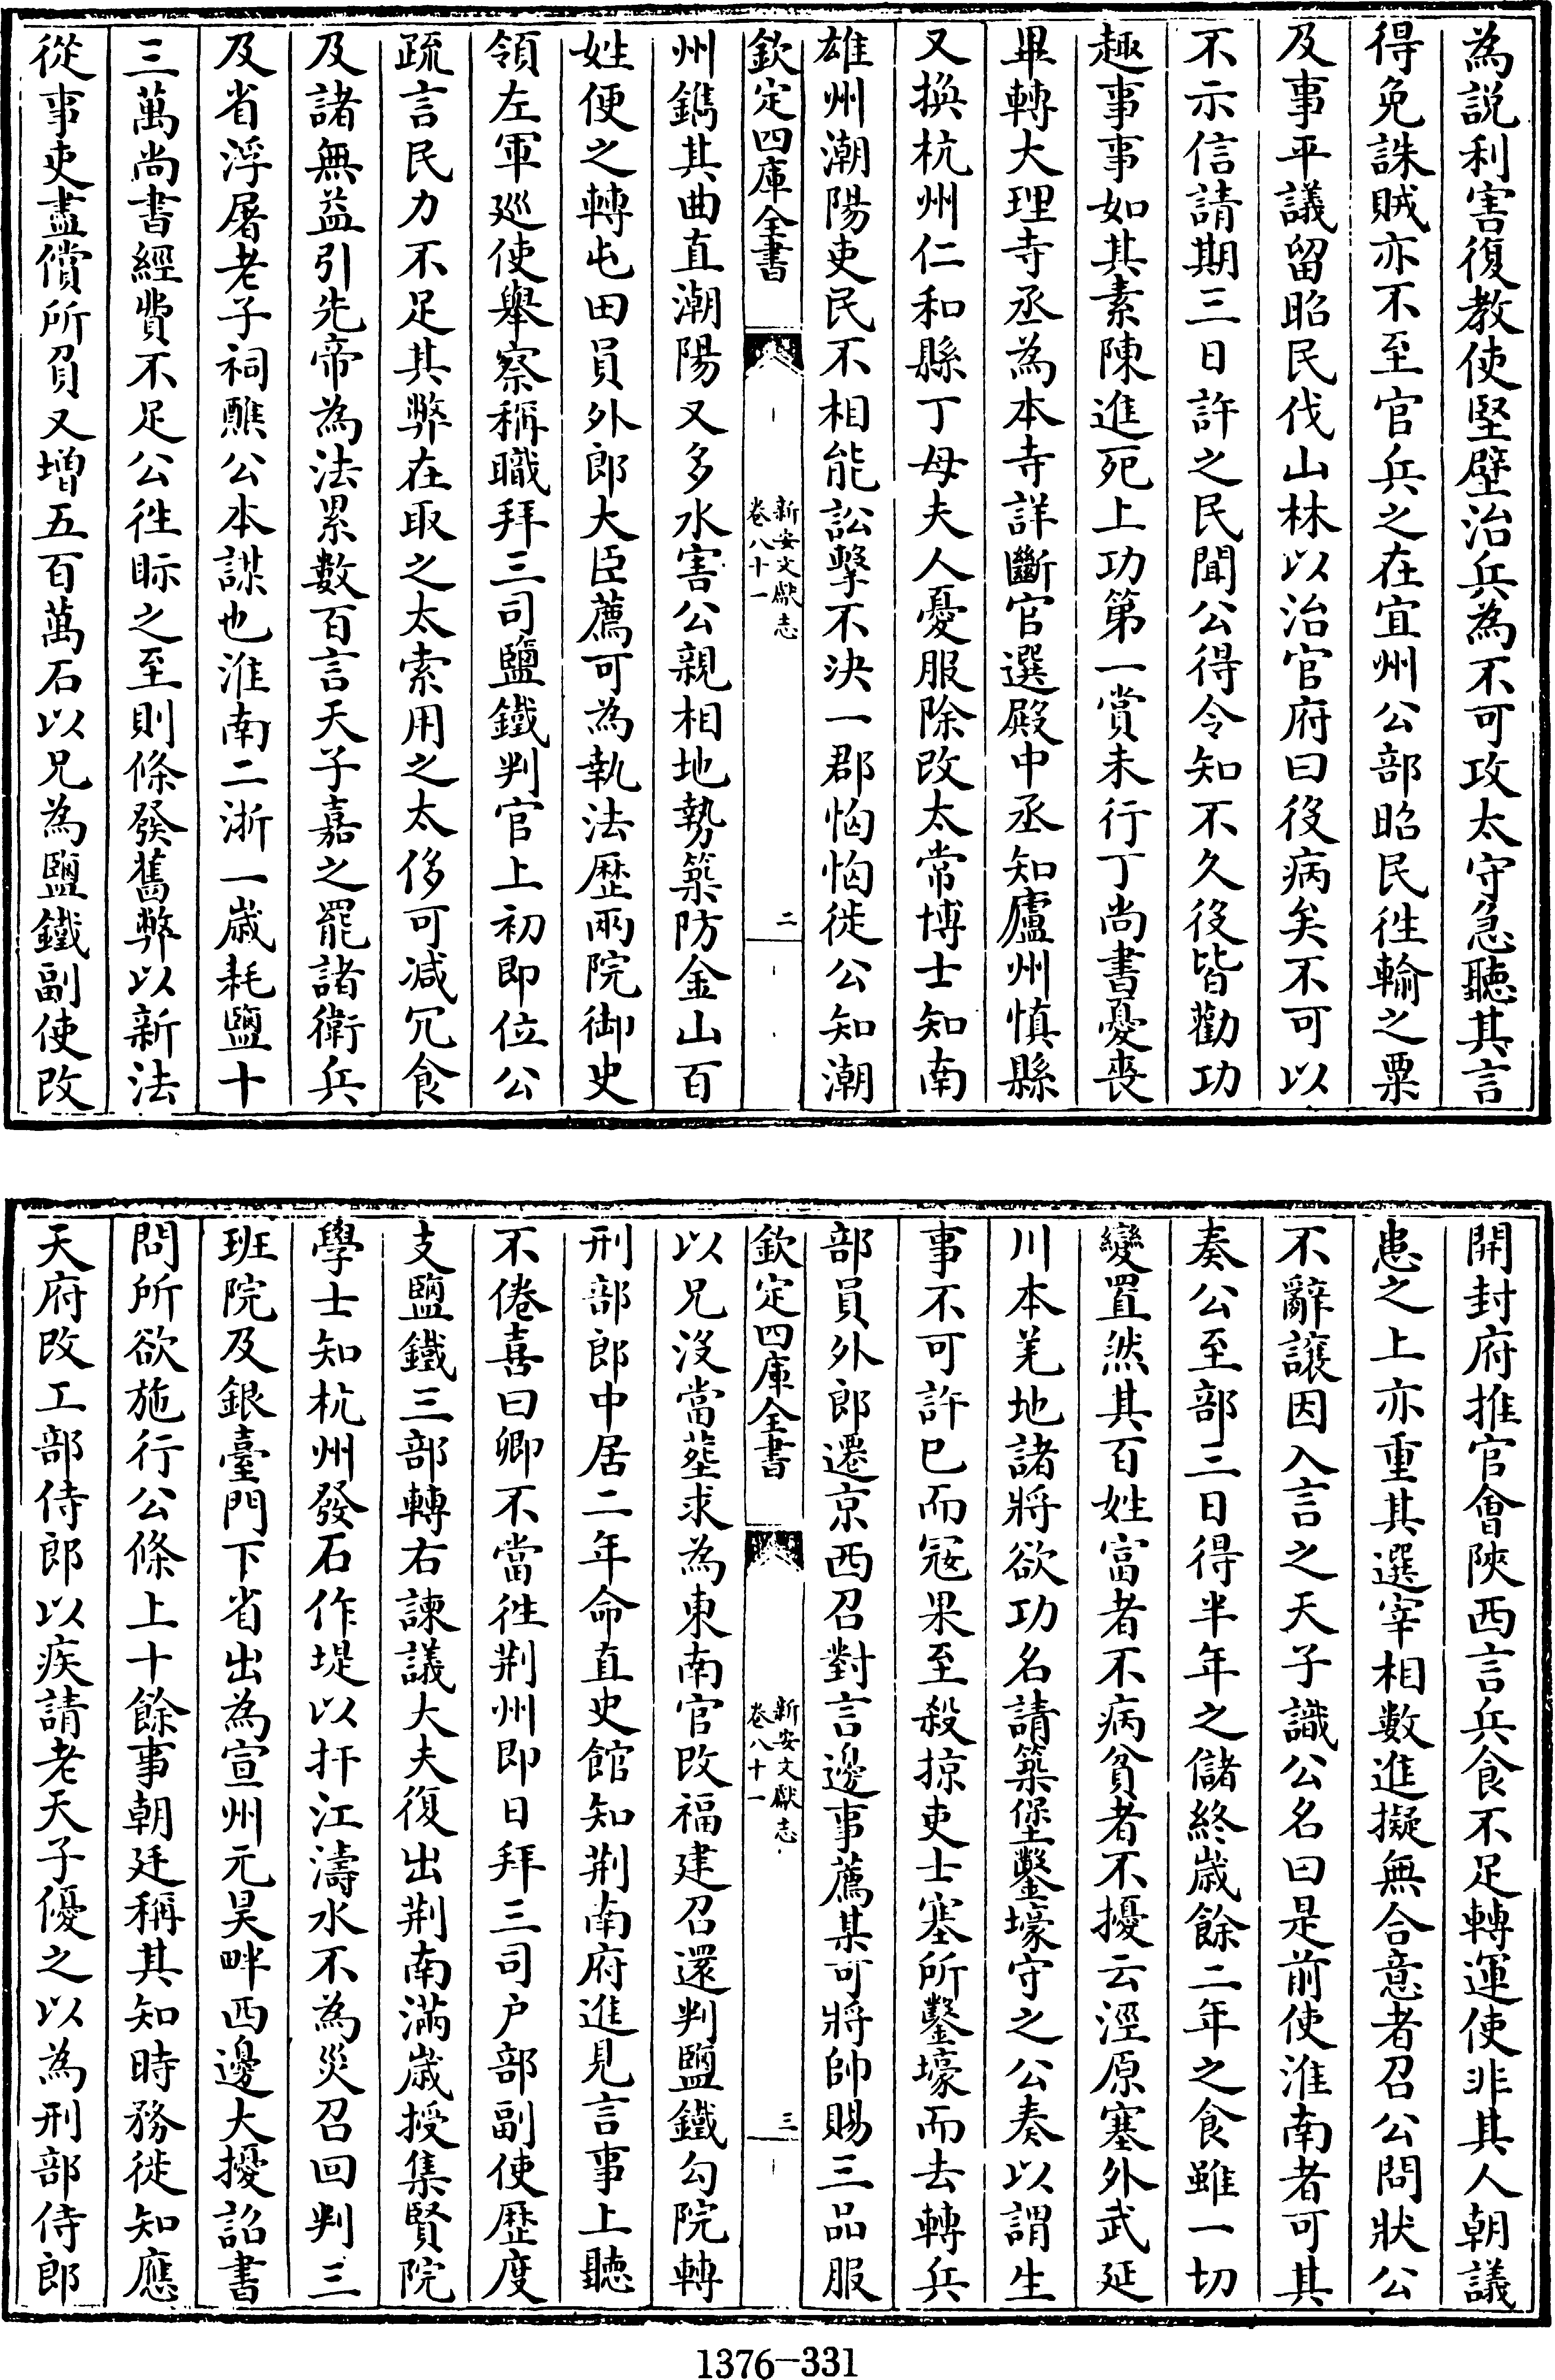 為説利害復教使堅壁治兵為不可攻太守急聽其言
得免誅賊亦不至官兵之在宜州公部昭民徃輸之粟
及事平議留昭民伐山林以治官府曰役病矣不可以
不示信請期三日許之民聞公得令知不久役皆勸功
趣事事如其素陳進死上功第一賞未行丁尚書憂喪
畢轉大理寺丞為本寺詳斷官選殿中丞知廬州慎縣
又換杭州仁和縣丁母夫人憂服除改太常博士知南
雄州潮陽吏民不相能訟擊不決一郡恟恟徙公知潮
欽定四庫全書
新安文獻志
卷八十一
二
州鐫其曲直潮陽又多水害公親相地勢築防金山百
姓便之轉屯田員外郎大臣薦可為執法歴兩院御史
領左軍廵使舉察稱職拜三司鹽鐵判官上初即位公
疏言民力不足其弊在取之太索用之太侈可減冗食
及諸無益引先帝為法累數百言天子嘉之罷諸衛兵
及省浮屠老子祠醮公本謀也淮南二浙一歲耗鹽十
三萬尚書經費不足公徃眎之至則條發舊弊以新法
從事吏盡償所負又增五百萬石以兄為鹽鐵副使改
開封府推官會陝西言兵食不足轉運使非其人朝議
患之上亦重其選宰相數進擬無合意者召公問狀公
不辭讓因入言之天子識公名曰是前使淮南者可其
奏公至部三日得半年之儲終歲餘二年之食雖一切
變置然其百姓富者不病貧者不擾云涇原塞外武延
川本羌地諸將欲功名請築堡鑿壕守之公奏以謂生
事不可許已而冦果至殺掠吏士塞所鑿壕而去轉兵
部員外郎遷京西召對言邊事薦某可將帥賜三品服
欽定四庫全書
新安文獻志
卷八十一
三
以兄沒當塟求為東南官改福建召還判鹽鐵勾院轉
刑部郎中居二年命直史館知荆南府進見言事上聽
不倦喜曰卿不當徃荆州即日拜三司户部副使歴度
支鹽鐵三部轉右諫議大夫復出荆南滿歲授集賢院
學士知杭州發石作堤以扞江濤水不為災召回判三
班院及銀臺門下省出為宣州元昊畔西邊大擾詔書
問所欲施行公條上十餘事朝廷稱其知時務徙知應
天府改工部侍郎以疾請老天子優之以為刑部侍郎
1376-331